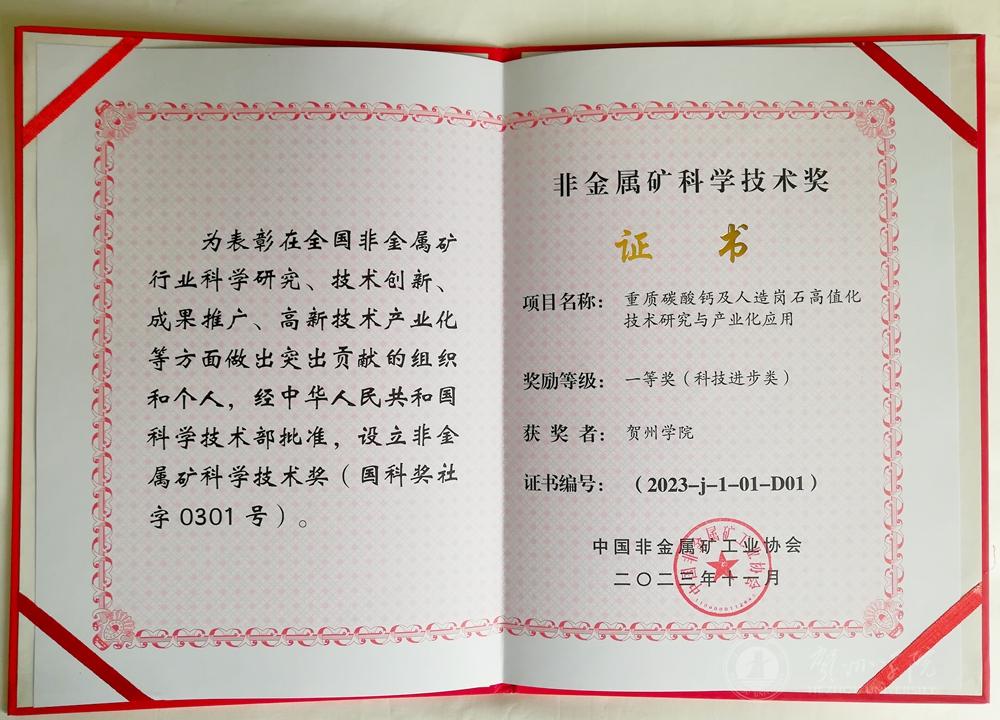 为表彰在全国非金属矿
行业科学研究、技术创新、
成果推广、高新技术产业化
等方面做出突出贡献的组织
和个人，经中华人民共和国
科学技术部批准，设立非金
属矿科学技术奖（国科奖社
字 0301 号）。
非金属矿科学技术奖
证 书
项目名称： 重质碳酸钙及人造岗石高值化
技术研究与产业化应用
奖励等级： 一等奖（科技进步类）
获 奖 者： 贺州学院
证书编号： （2023-j-1-01-D01）
中国非金属矿工业协会
二〇二三年十一月
中国非金属矿工业协会
贺州学院
HEZHOU UNIVERSITY